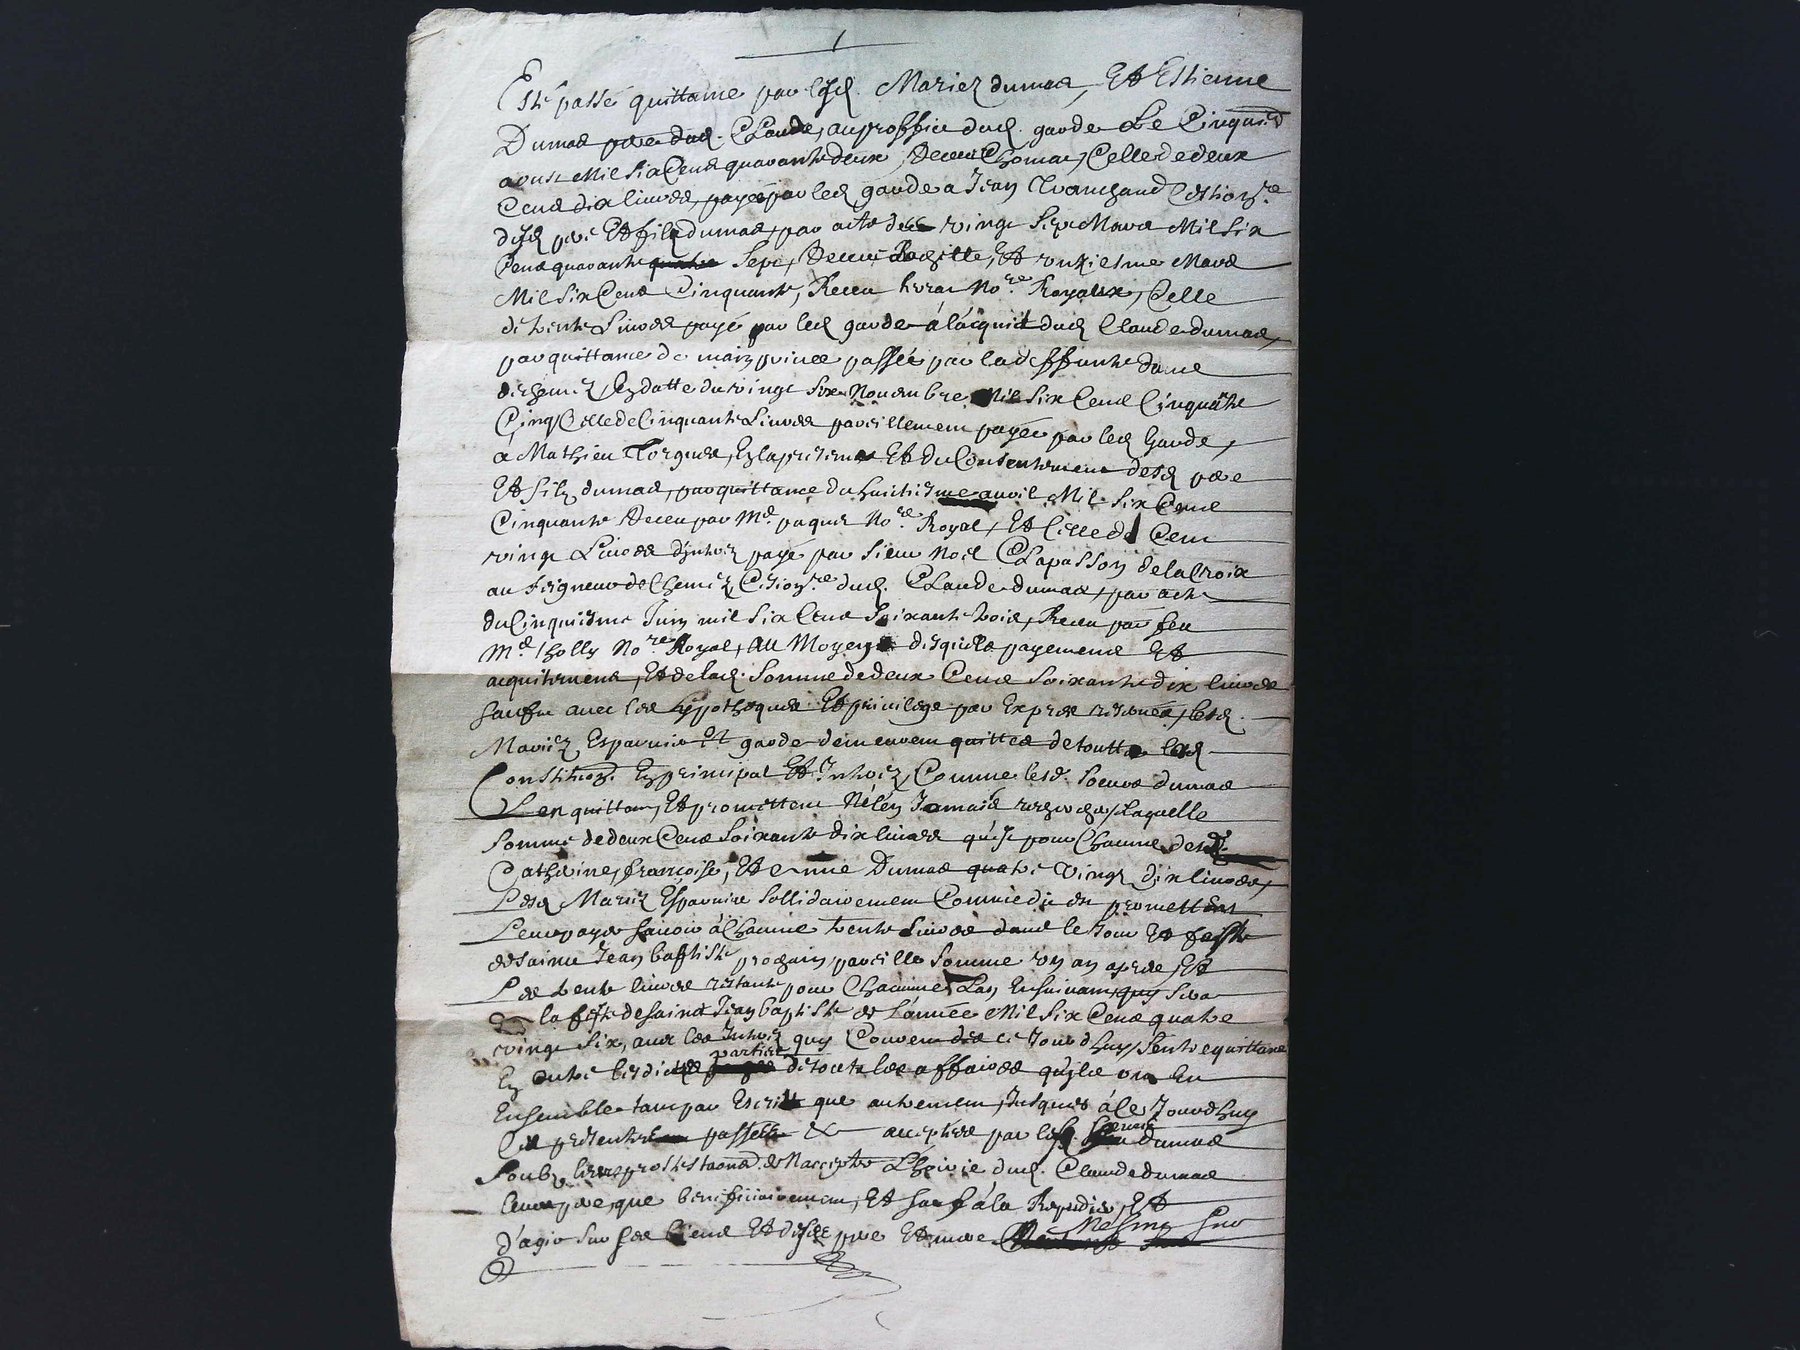 Esté passé quittance par lesd. Mariez dumas, Et Estienne
Dumas pere dud. Claude, au proffict dud. garde Le Cinquie
aoust Mil six Cens quarante deux, Receue Thomas, Celle de deux
Cens dix livres, payés par led garde a Jean Cessionre
desd pere Et filz dumas, par acte des vingt sept Mars Mil Six
Cens quarante sept, Receus Et unziesme Mars
Mil six Cens Cinquante, Receu No.re Royaux, Celle
de trente Livres payé par led garde a l'acquit dud Claude dumas,
par quittance de main privee passée par la deffunte dame
de chemé En datte du vingt six Novembre Mil Six Cens Cinquante
Cinq Celle de Cinquante Livres pareillement payée par led Garde,
a Mathieu En la presence Et du Consentement desd pere
Et filz dumas, par quittance du huictiesme avril Mil Six Cens
Cinquante Receu par Me. paquet No.re Royal, Et Celle de Cent
vingt Livres d'Intrez payé par Sieur Noel Chapasson de la Croix
au seigneur de Chemé, Cession.re dud. Claude dumas, par acte
du Cinquiesme Juin mil six Cens soixante trois, Receu par feu
Me. No.re Royal, Au Moyen desquels payemens Et
acquitemens, Et de lad. Somme de deux Cens soixante dix livres
sauf avec les hypotheques Et privilege par Expres reservés, lesd.
Mariez, Esparvier et garde demeurent quittes de toutte lesd
Constitution. En principal Et Intrez, Comme lesd. soeurs dumas
Len quittent, Et promettent N'en Jamais recherche, Laquelle
Somme de deux Cens Soixante dix livres qu'est pour Chacune desd.
Catherine, francoise, Et annie Dumas quatre Vingt dix livres,
Lesd Mariez Esparvier sollidairement Comme dit est promettent
Leur payer sçavoir à Chacune trente Livres dans le Jour Et feste
de sainct Jean baptiste prochain, pareille somme un an apres, Et
Les trente livres restante pour Chacune Lan Ensuivant, quy sera
En la feste de sainct Jean baptiste de L'année Mil Six Cens quatre
vingt six, avec les Intrez quy Couvent des ce Jourd'huy, sentrequittans
En outre lesdites parties de toute les affaires qu'ils ont Eu
Ensemble tant par Escritt que autrement, Jusques à Ce Jourdhuy
Ces presentes passées & acceptées par lesd. soeurs dumas
soubz leurs protestations de N'accepter L'hoirie dud. Claude dumas
leur pere, que beneficiairement, Et sauf à la Repudier, Et
d'agir sur ses biens Et desd pere Et mere Mesme sur